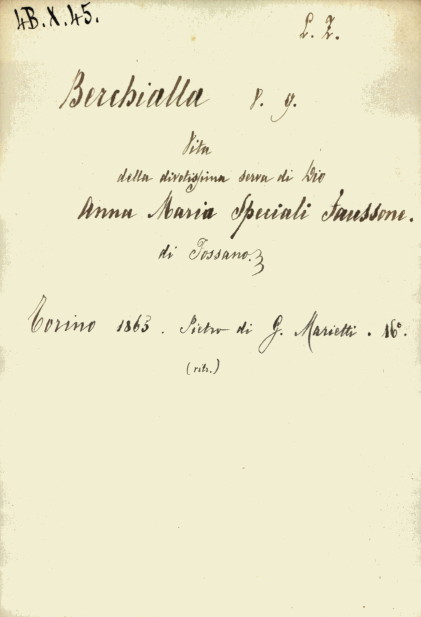 4B.X.45.
L. Z.
Berchialla P. G.
Vita
della divotissima serva di Dio
Anna Maria Speciali Faussone.
di Fossano.
Torino 1863. Pietro di G. Marietti. 16°.
(ritr.)